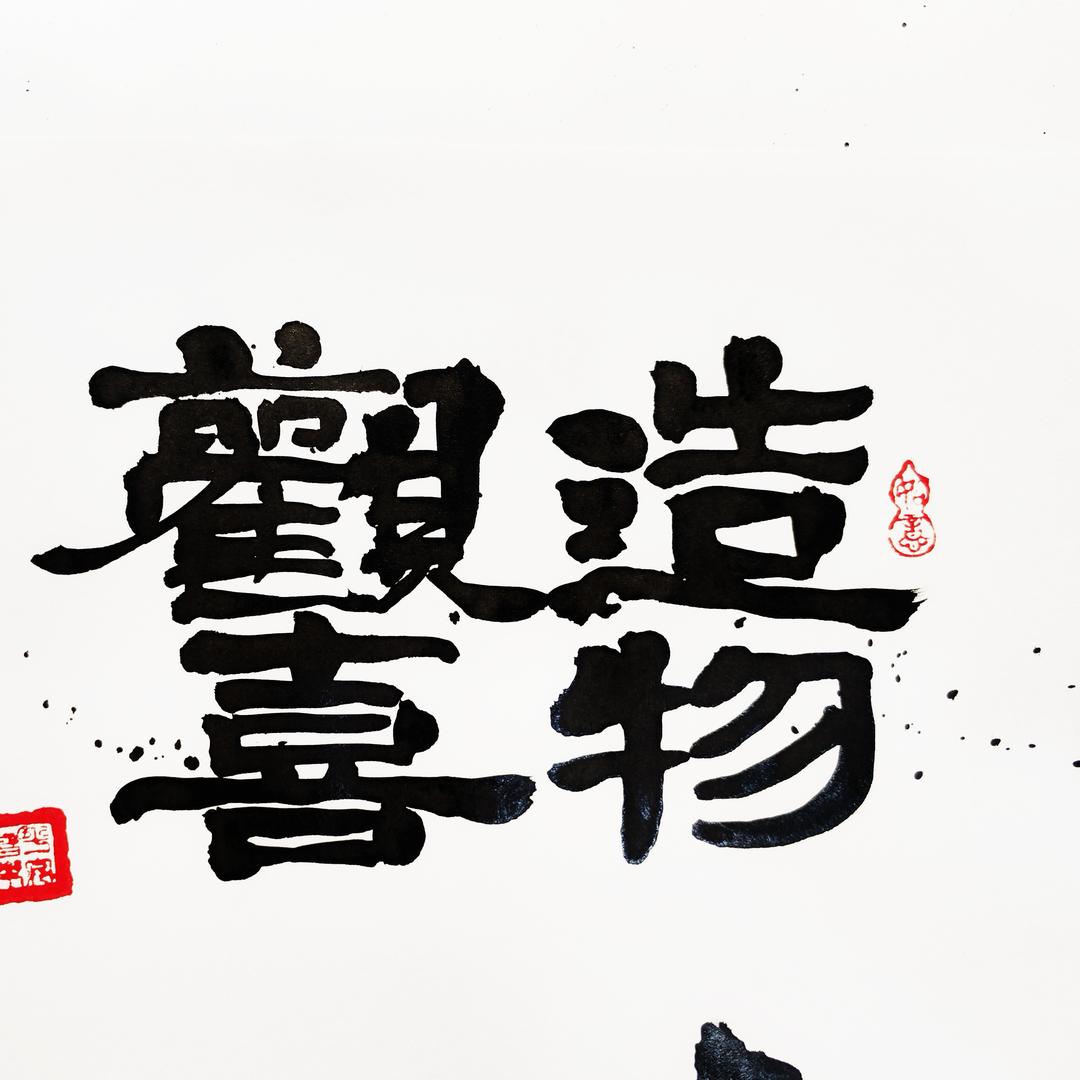 造物
觀喜